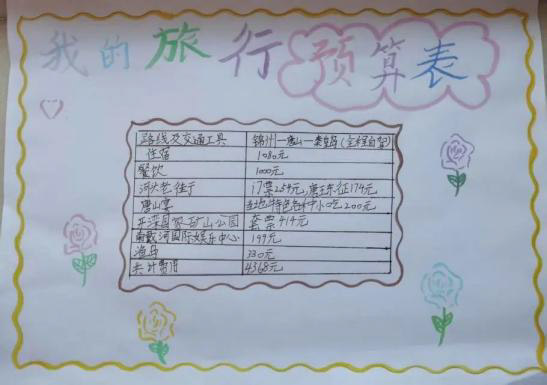 我的旅行预算表
路线及交通工具 锦州—唐山—秦皇岛(全程自驾)
住宿 1080元
餐饮 1000元
门票254元,唐 174元
唐山宴 特色各种小吃200元
开滦国家矿山公园 套票414元
南戴河国际娱乐中心 199元
渔岛 330元
共计费用 4368元